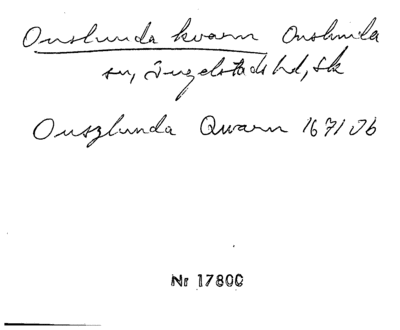 Onslunda kvarn Onslunda
sn, Ingelstads hd, Sk
Onszlunda Qwarn 1671 Jb
Nr 17800